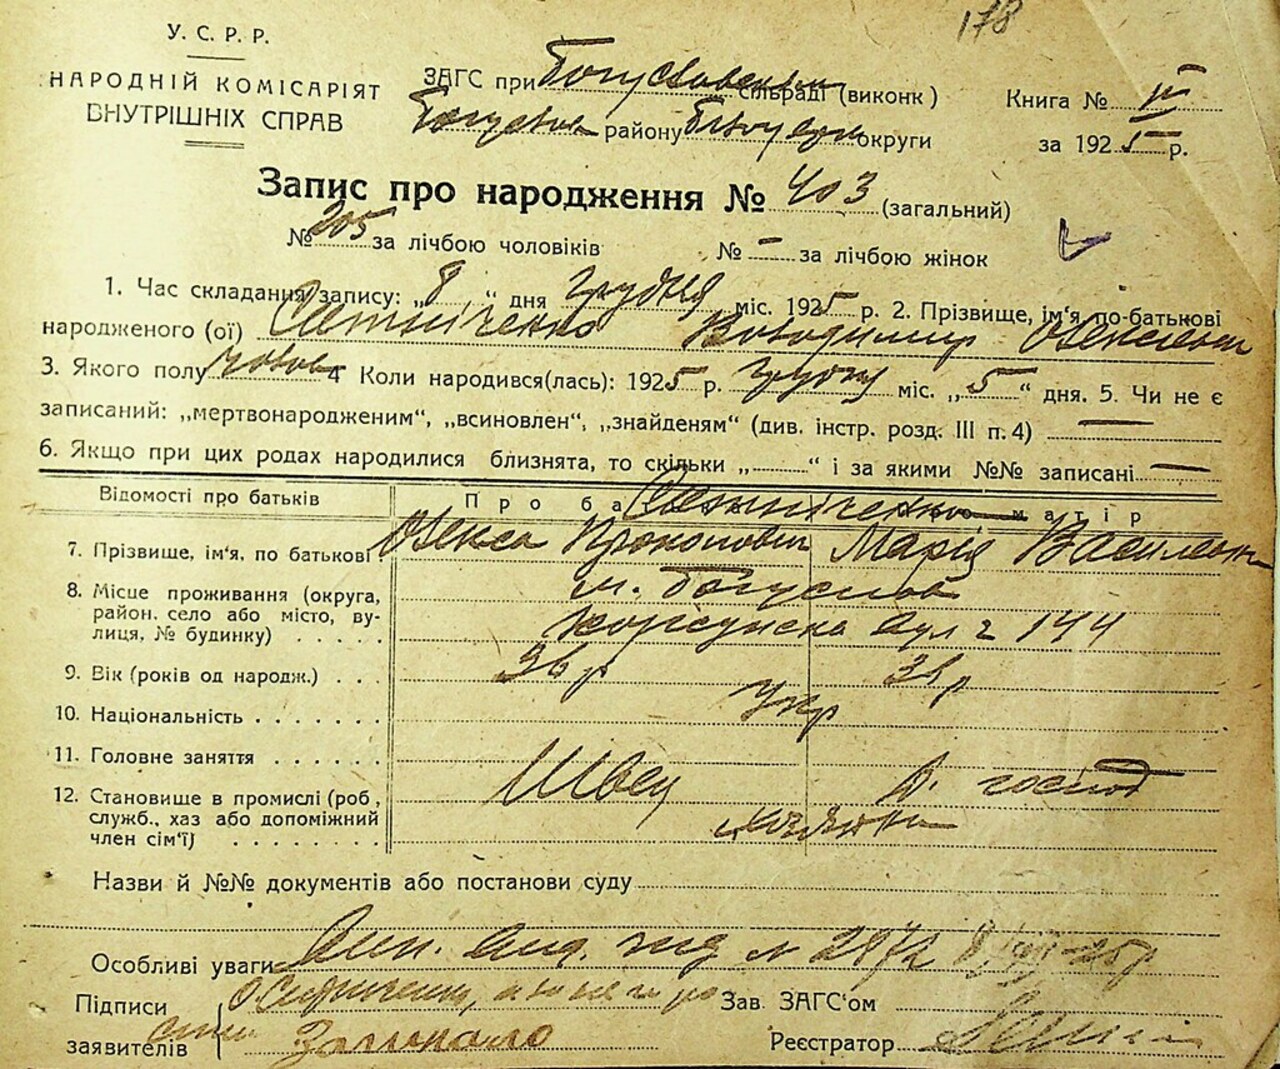 178
У. С. Р. Р.
НАРОДНІЙ КОМІСАРІЯТ
ВНУТРІШНІХ СПРАВ
ЗАГС при Богуславськ сільраді (виконк)
Богуслав району Білоцерк округи
Книга № IV
за 1925 р.
Запис про народження № 403 (загальний)
№ 205 за лічбою чоловіків № – за лічбою жінок
1. Час складання запису: „8“ дня Грудня міс. 1925 р. 2. Прізвище, ім'я, по-батькові
народженого (ої) Ситніченко Володимир Олексієв
3. Якого полу чолов 4 Коли народився(лась): 1925 р. Грудня міс. „5“ дня. 5. Чи не є
записаний: „мертвонародженим“, „всиновлен“, „знайденям“ (див. інстр. розд. III п. 4) —
6. Якщо при цих родах народилися близнята, то скільки „.........“ і за якими №№ записані —
Відомості про батьків
Про ба матір
Ситніченко
7. Прізвище, ім'я, по батькові Олекса Прокопович Марія Василевн
8. Місце проживання (округа, район. село або місто, вулиця, № будинку) . . . . .
м. Богуслав
вул ч 144
9. Вік (років од народж.) . . . 36 р 31 р
10. Національність . . . . . . . Укр
11. Головне заняття . . . . . . Швец д. господ
12. Становище в промислі (роб, служб., хаз або допоміжний член сім'ї) . . . . . . . .
Назви й №№ документів або постанови суду
Особливі уваги № 2872 8/XII–25р
Підписи О Ситниченко, Зав. ЗАГС'ом
заявителів Реєстратор